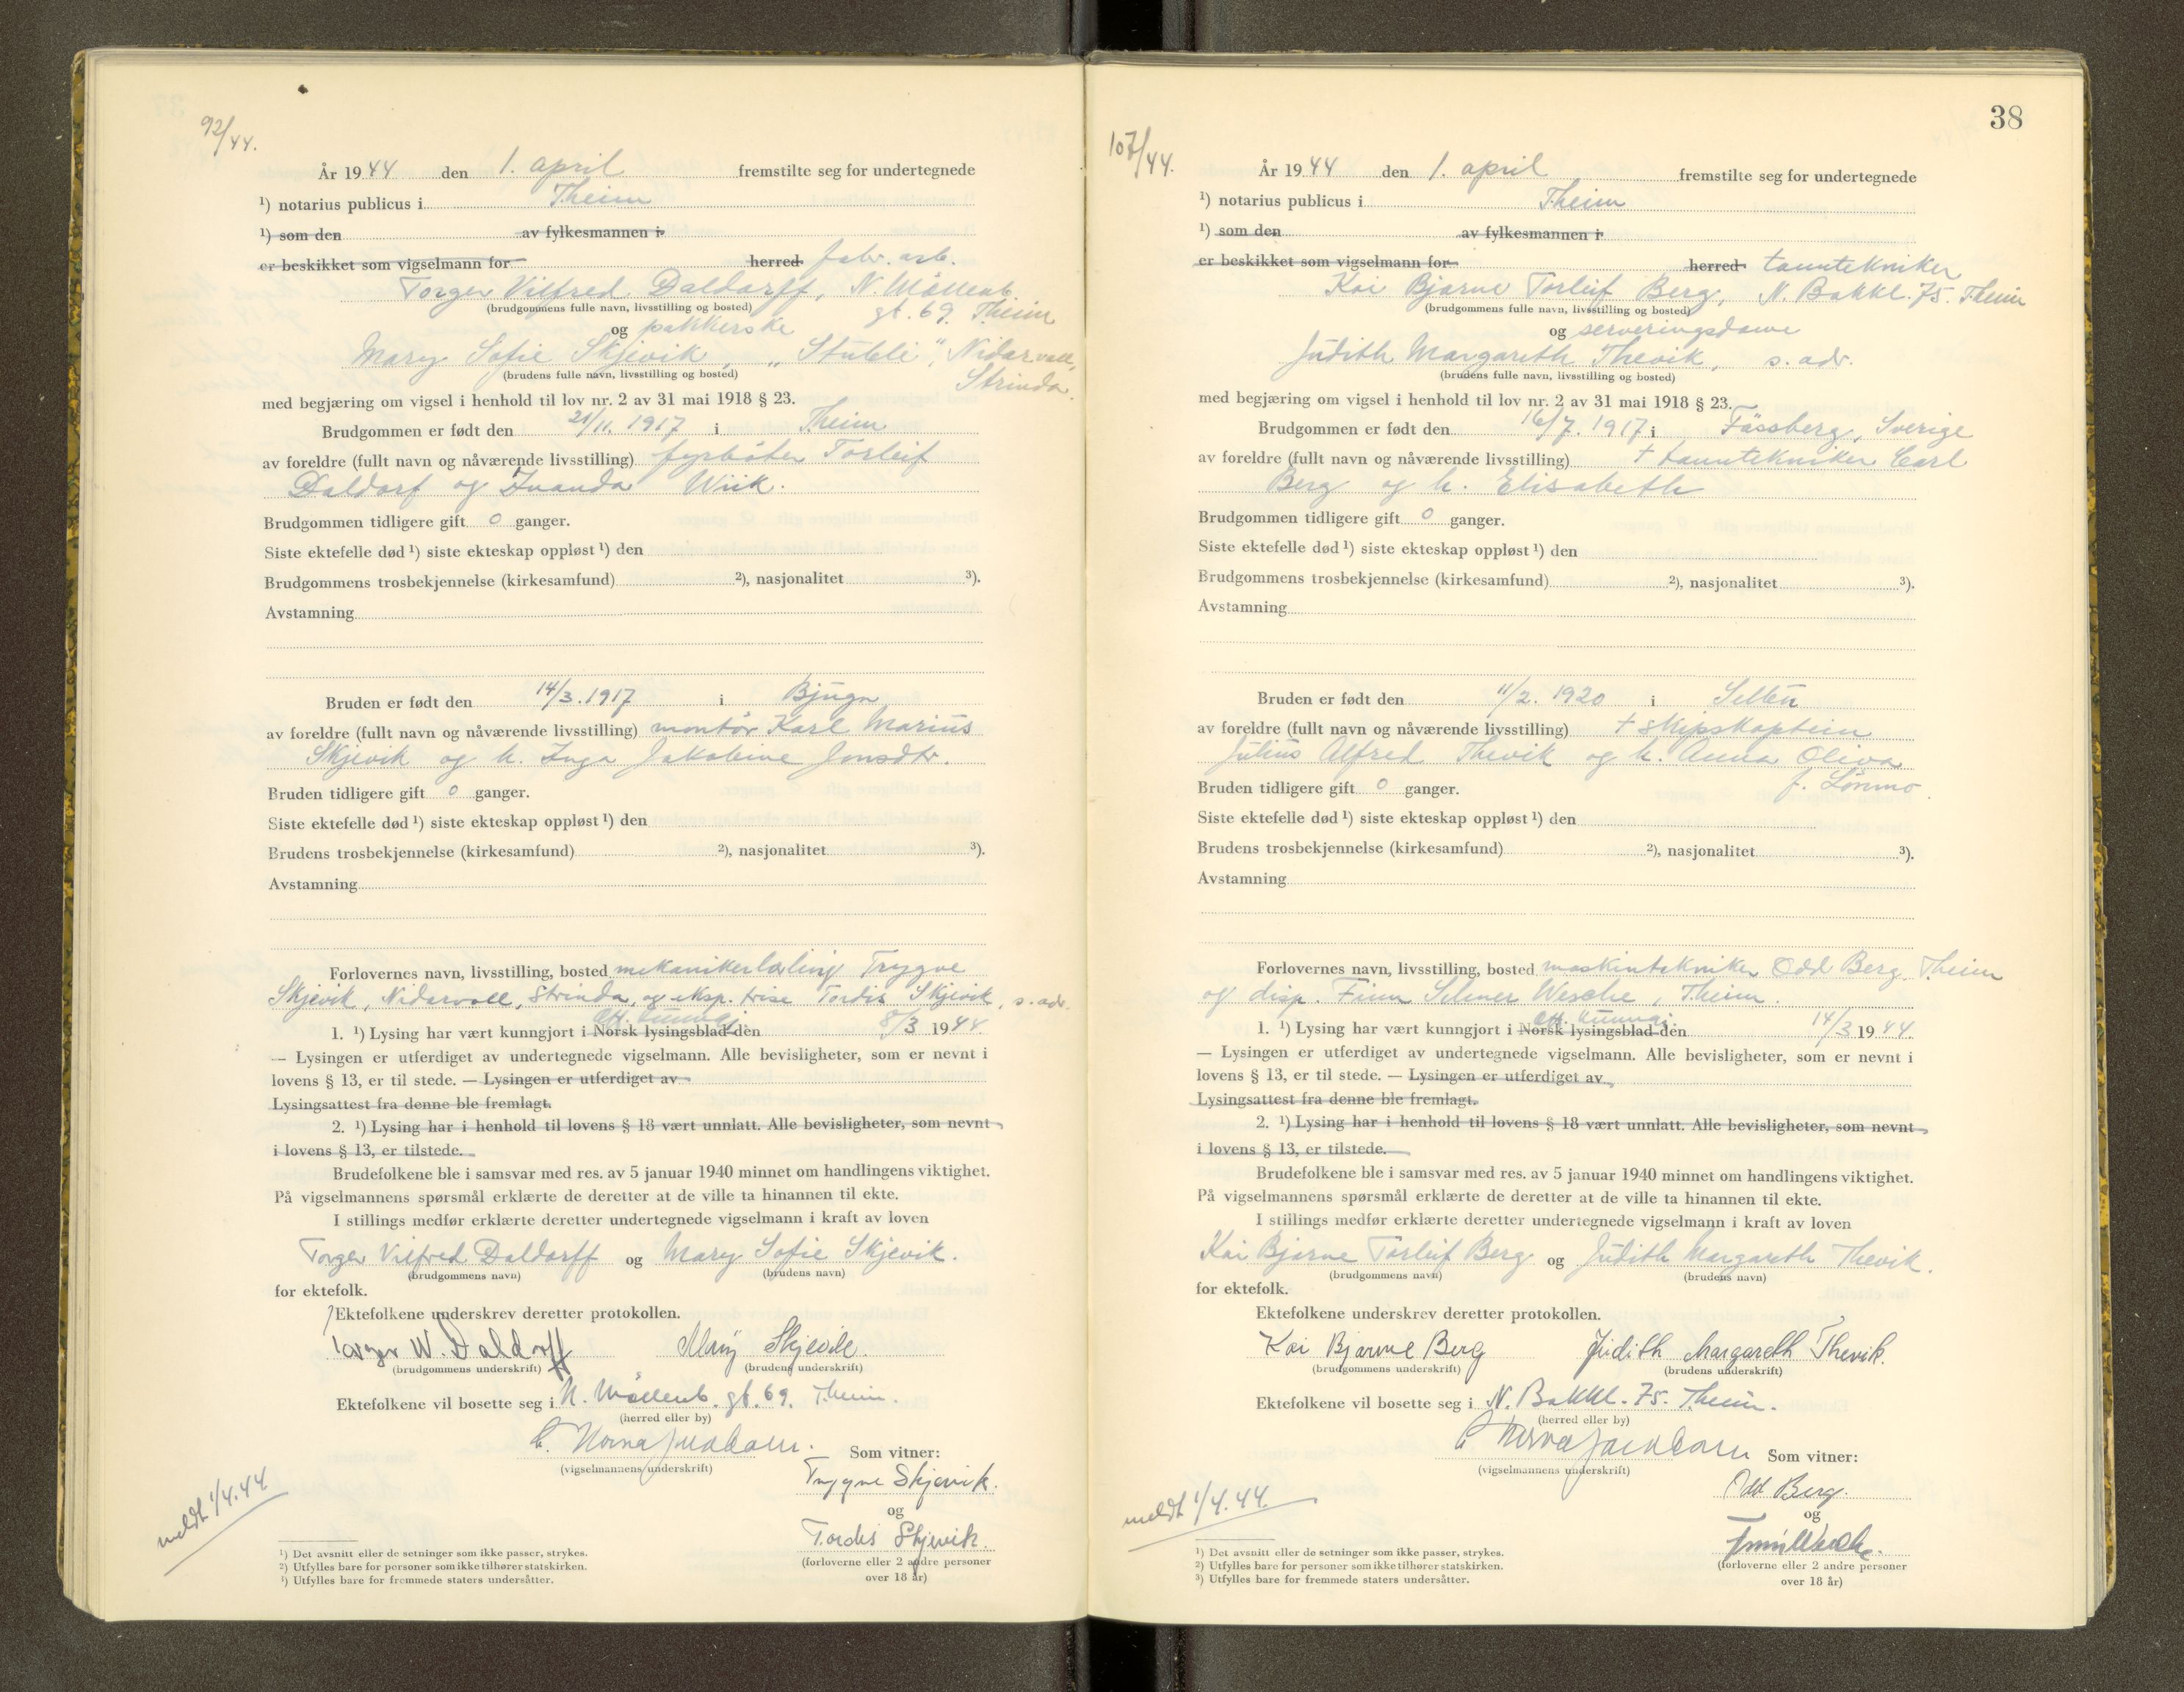 92/44.
År 1944 den 1. april fremstilte seg for undertegnede
¹) notarius publicus i Theim
¹) som den av fylkesmannen i
er beskikket som vigselmann for herred fabr. arb.
Torger Vilfred Daldorff, N. Möllenb.
(brudgommens fulle navn, livsstilling og bosted) gt. 69. Theim
og pakkerske
Mary Sofie Skjevik, "Stubli", Nidarvoll,
(brudens fulle navn, livsstilling og bosted) Strinda.
med begjæring om vigsel i henhold til lov nr. 2 av 31 mai 1918 § 23.
Brudgommen er født den 21/11. 1917 i Theim
av foreldre (fullt navn og nåværende livsstilling) fyrbøter Torleif
Daldorf og Wiik.
Brudgommen tidligere gift 0 ganger.
Siste ektefelle død ¹) siste ekteskap oppløst ¹) den
Brudgommens trosbekjennelse (kirkesamfund) ²), nasjonalitet ³).
Avstamning
Bruden er født den 14/3. 1917 i Bjugn
av foreldre (fullt navn og nåværende livsstilling) montør Karl Marius
Skjevik og h. Inga Jakobine Jonsdtr.
Bruden tidligere gift 0 ganger.
Siste ektefelle død ¹) siste ekteskap oppløst ¹) den
Brudens trosbekjennelse (kirkesamfund) ²), nasjonalitet ³).
Avstamning
Forlovernes navn, livsstilling, bosted mekanikerlærling Trygve
Skjevik, Nidarvoll, Strinda, og eksp. trise Tordis Skjevik, s. adr.
off. kunngj.
1. ¹) Lysing har vært kunngjort i Norsk lysingsblad den 8/3 1944.
— Lysingen er utferdiget av undertegnede vigselmann. Alle bevisligheter, som er nevnt i
lovens § 13, er til stede. — Lysingen er utferdiget av
Lysingsattest fra denne ble fremlagt.
2. ¹) Lysing har i henhold til lovens § 18 vært unnlatt. Alle bevisligheter, som nevnt
i lovens § 13, er tilstede.
Brudefolkene ble i samsvar med res. av 5 januar 1940 minnet om handlingens viktighet.
På vigselmannens spørsmål erklærte de deretter at de ville ta hinannen til ekte.
I stillings medfør erklærte deretter undertegnede vigselmann i kraft av loven
Torger Vilfred Daldorff og Mary Sofie Skjevik.
(brudgommens navn) (brudens navn)
for ektefolk.
Ektefolkene underskrev deretter protokollen.
Torger W. Daldorff Mary Skjevik
(brudgommens underskrift) (brudens underskrift)
Ektefolkene vil bosette seg i N. Möllenb. gt. 69. Theim.
(herred eller by)
Som vitner:
(vigselmannens underskrift)
Trygve Skjevik.
og
Tordis Skjevik.
(forloverne eller 2 andre personer
over 18 år)
meldt 1/4.44
¹) Det avsnitt eller de setninger som ikke passer, strykes.
²) Utfylles bare for personer som ikke tilhører statskirken.
¹) Utfylles bare for fremmede staters undersåtter.
38
107/44.
År 1944 den 1. april fremstilte seg for undertegnede
¹) notarius publicus i Theim
¹) som den av fylkesmannen i
er beskikket som vigselmann for herred tanntekniker
Kai Bjarne Torleif Berg, N. Bakkl. 75. Theim
(brudgommens fulle navn, livsstilling og bosted)
og serveringsdame
Judith Margareth Thevik, s. adr.
(brudens fulle navn, livsstilling og bosted)
med begjæring om vigsel i henhold til lov nr. 2 av 31 mai 1918 § 23.
Brudgommen er født den 16/7. 1917 i Fässberg, Sverige
av foreldre (fullt navn og nåværende livsstilling) + tanntekniker Carl
Berg og h. Elisabeth
Brudgommen tidligere gift 0 ganger.
Siste ektefelle død ¹) siste ekteskap oppløst ¹) den
Brudgommens trosbekjennelse (kirkesamfund) ²), nasjonalitet ³).
Avstamning
Bruden er født den 11/2. 1920 i
av foreldre (fullt navn og nåværende livsstilling) + skipskaptein
Julius Alfred Thevik og h. Anna Oliva
Bruden tidligere gift 0 ganger. f. Lönmo
Siste ektefelle død ¹) siste ekteskap oppløst ¹) den
Brudens trosbekjennelse (kirkesamfund) ²), nasjonalitet ³).
Avstamning
Forlovernes navn, livsstilling, bosted maskintekniker Odd Berg. Theim
og disp. Finn Selmer Wesche, Theim.
off. kunngj.
1. ¹) Lysing har vært kunngjort i Norsk lysingsblad den 14/3 1944.
— Lysingen er utferdiget av undertegnede vigselmann. Alle bevisligheter, som er nevnt i
lovens § 13, er til stede. — Lysingen er utferdiget av
Lysingsattest fra denne ble fremlagt.
2. ¹) Lysing har i henhold til lovens § 18 vært unnlatt. Alle bevisligheter, som nevnt
i lovens § 13, er tilstede.
Brudefolkene ble i samsvar med res. av 5 januar 1940 minnet om handlingens viktighet.
På vigselmannens spørsmål erklærte de deretter at de ville ta hinannen til ekte.
I stillings medfør erklærte deretter undertegnede vigselmann i kraft av loven
Kai Bjarne Torleif Berg og Judith Margareth Thevik.
(brudgommens navn) (brudens navn)
for ektefolk.
Ektefolkene underskrev deretter protokollen.
Kai Bjarne Berg Judith Margareth Thevik.
(brudgommens underskrift) (brudens underskrift)
Ektefolkene vil bosette seg i N. Bakkl. 75. Theim.
(herred eller by)
Som vitner:
(vigselmannens underskrift)
Odd Berg.
og
Finn Wesche.
(forloverne eller 2 andre personer
over 18 år)
meldt 1/4.44.
¹) Det avsnitt eller de setninger som ikke passer, strykes.
²) Utfylles bare for personer som ikke tilhører statskirken.
³) Utfylles bare for fremmede staters undersåtter.